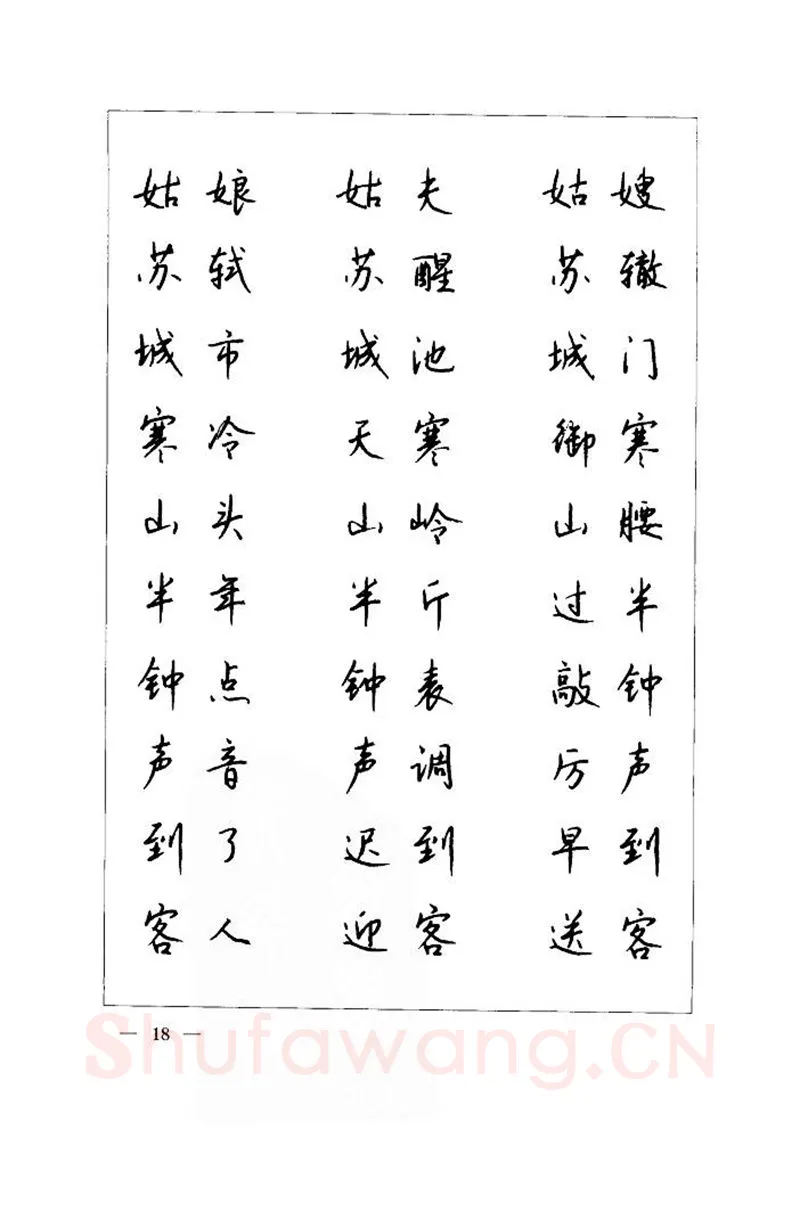 姑娘 姑夫 姑嫂
苏轼 苏醒 苏辙
城市 城池 城门
寒冷 天寒 御寒
山头 山岭 山腰
半年 半斤 过半
钟点 钟表 敲钟
声音 声调 厉声
到了 迟到 早到
客人 迎客 送客
— 18 —
Shufawang.CN